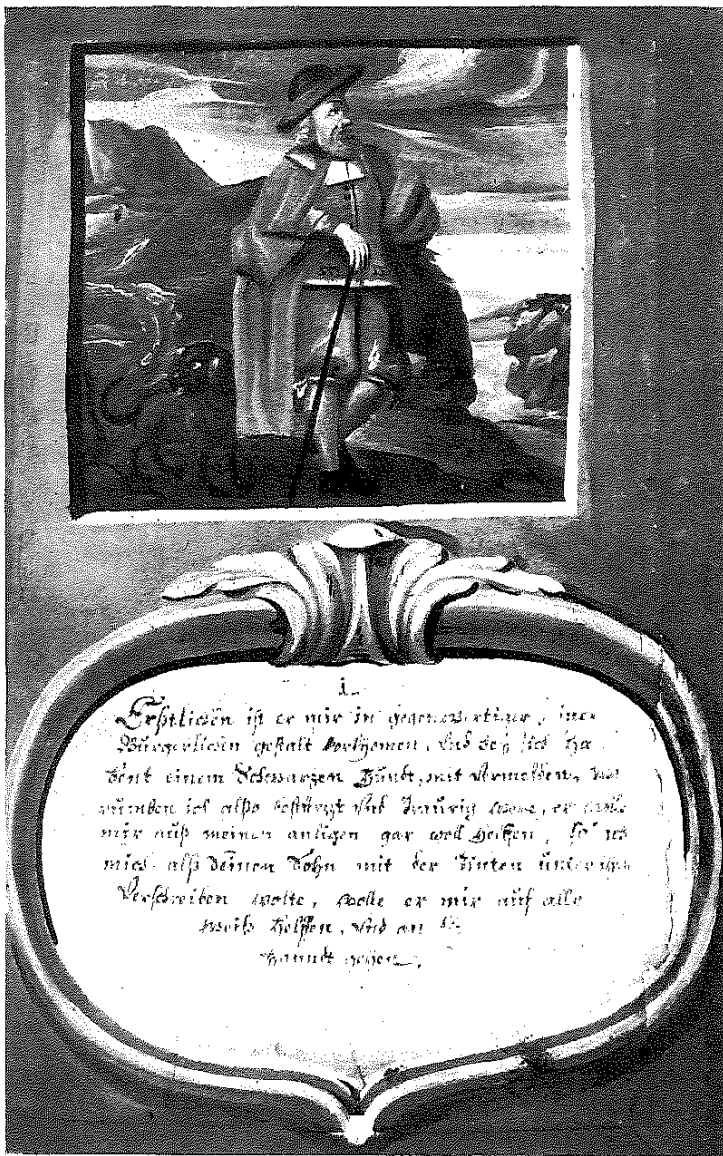 1.
Erstlichen ist er mir in gegenwertiger,
Burgerlichen gestalt vorkhomen, Vnd bey sich ha
bent einem Schwarzen Hundt, mit Vermelden,
rumben ich alßo bestürzt Vnd Traurig were, er wolle
mir auß meinen anligen gar woll helfen, so ich
mich alß seinen Sohn mit der Tinten
Verschreiben wolte, wolle er mir auf alle
weiß helffen, Vnd an
handt gehen.